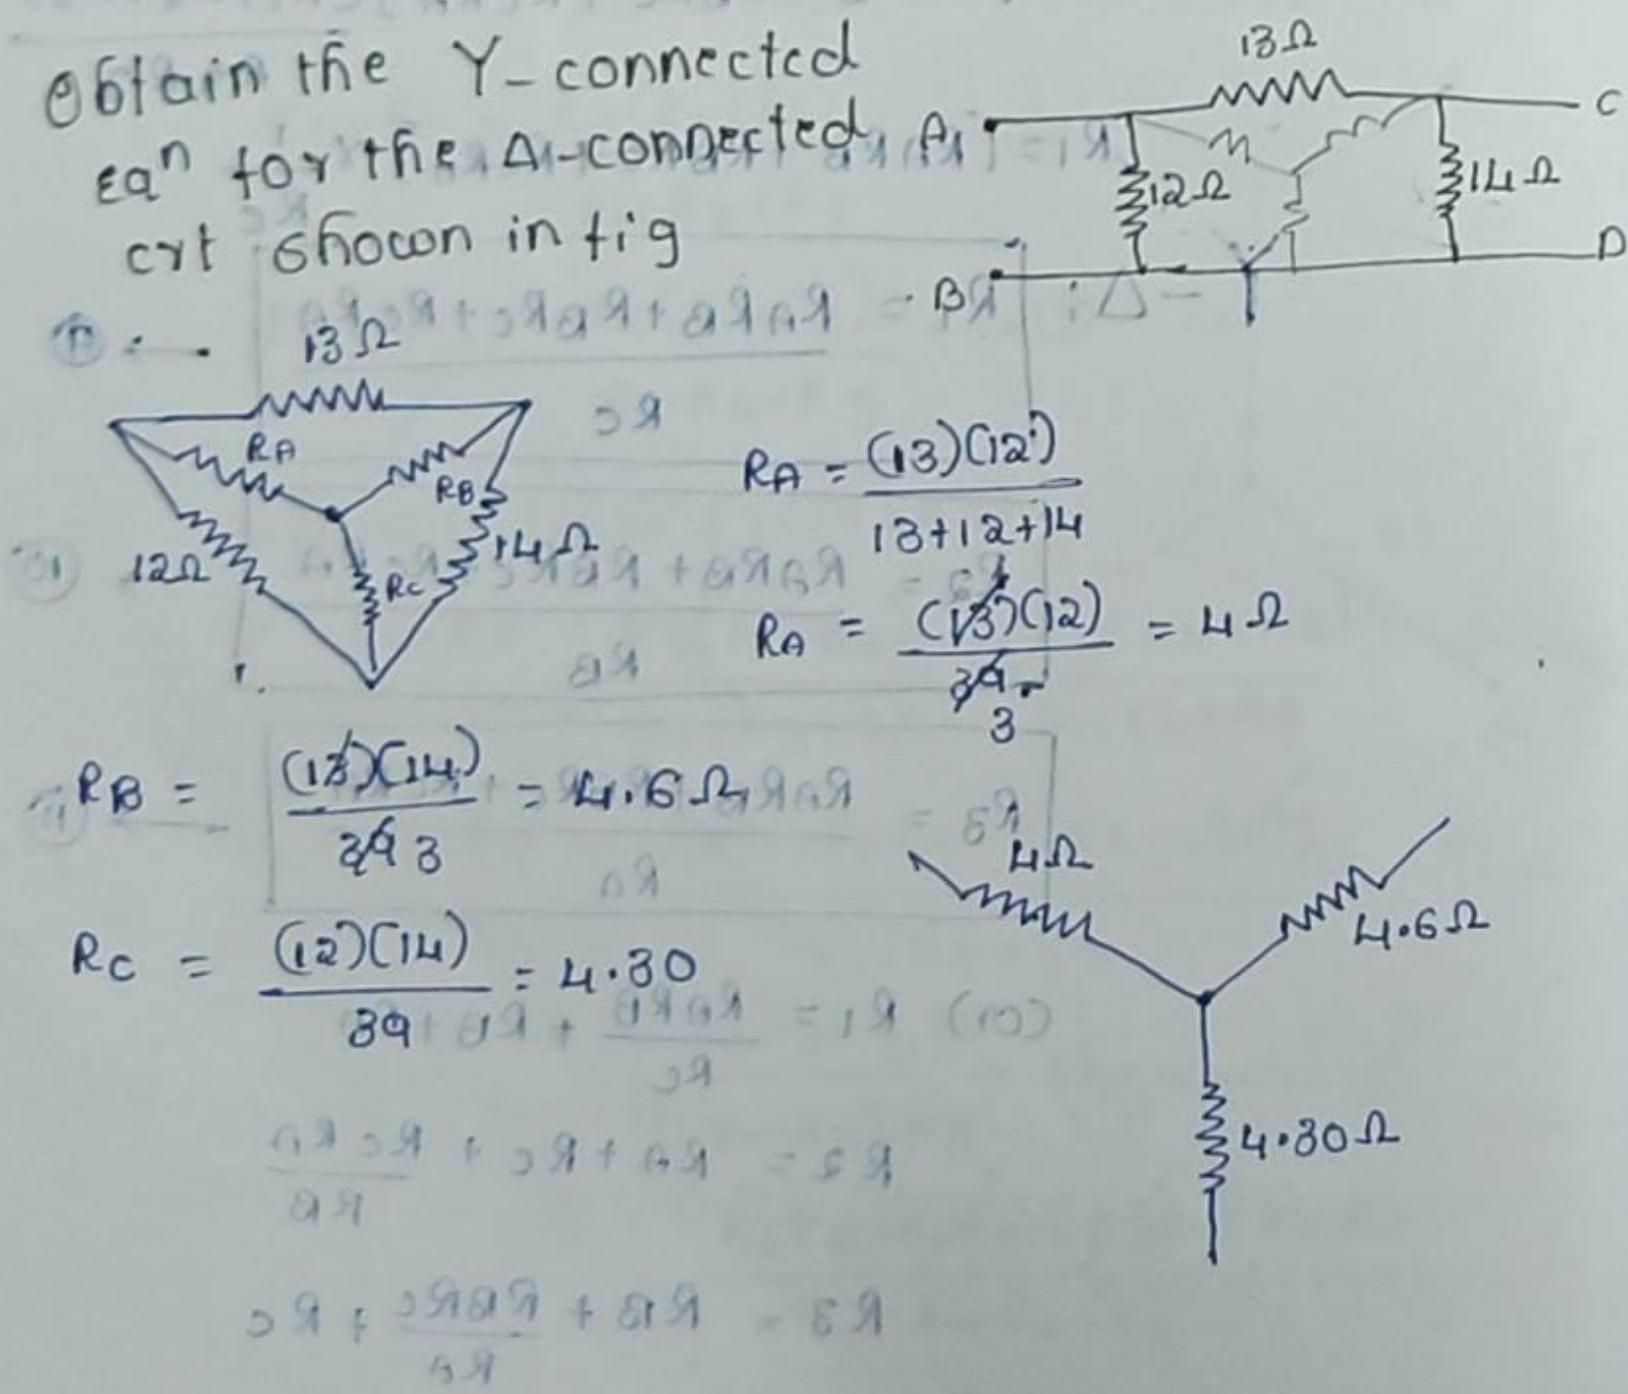 Obtain the Y-connected
eqn for the Δ-connected
crt shown in fig
13Ω
A
C
12Ω
14Ω
B
D
13Ω
RA
RB
12Ω
14Ω
RC
RA = (13)(12) / 13+12+14
RA = (13)(12) / 39 3 = 4Ω
RB = (13)(14) / 39 3 = 4.6Ω
RC = (12)(14) / 39 = 4.30
4Ω
4.6Ω
4.30Ω